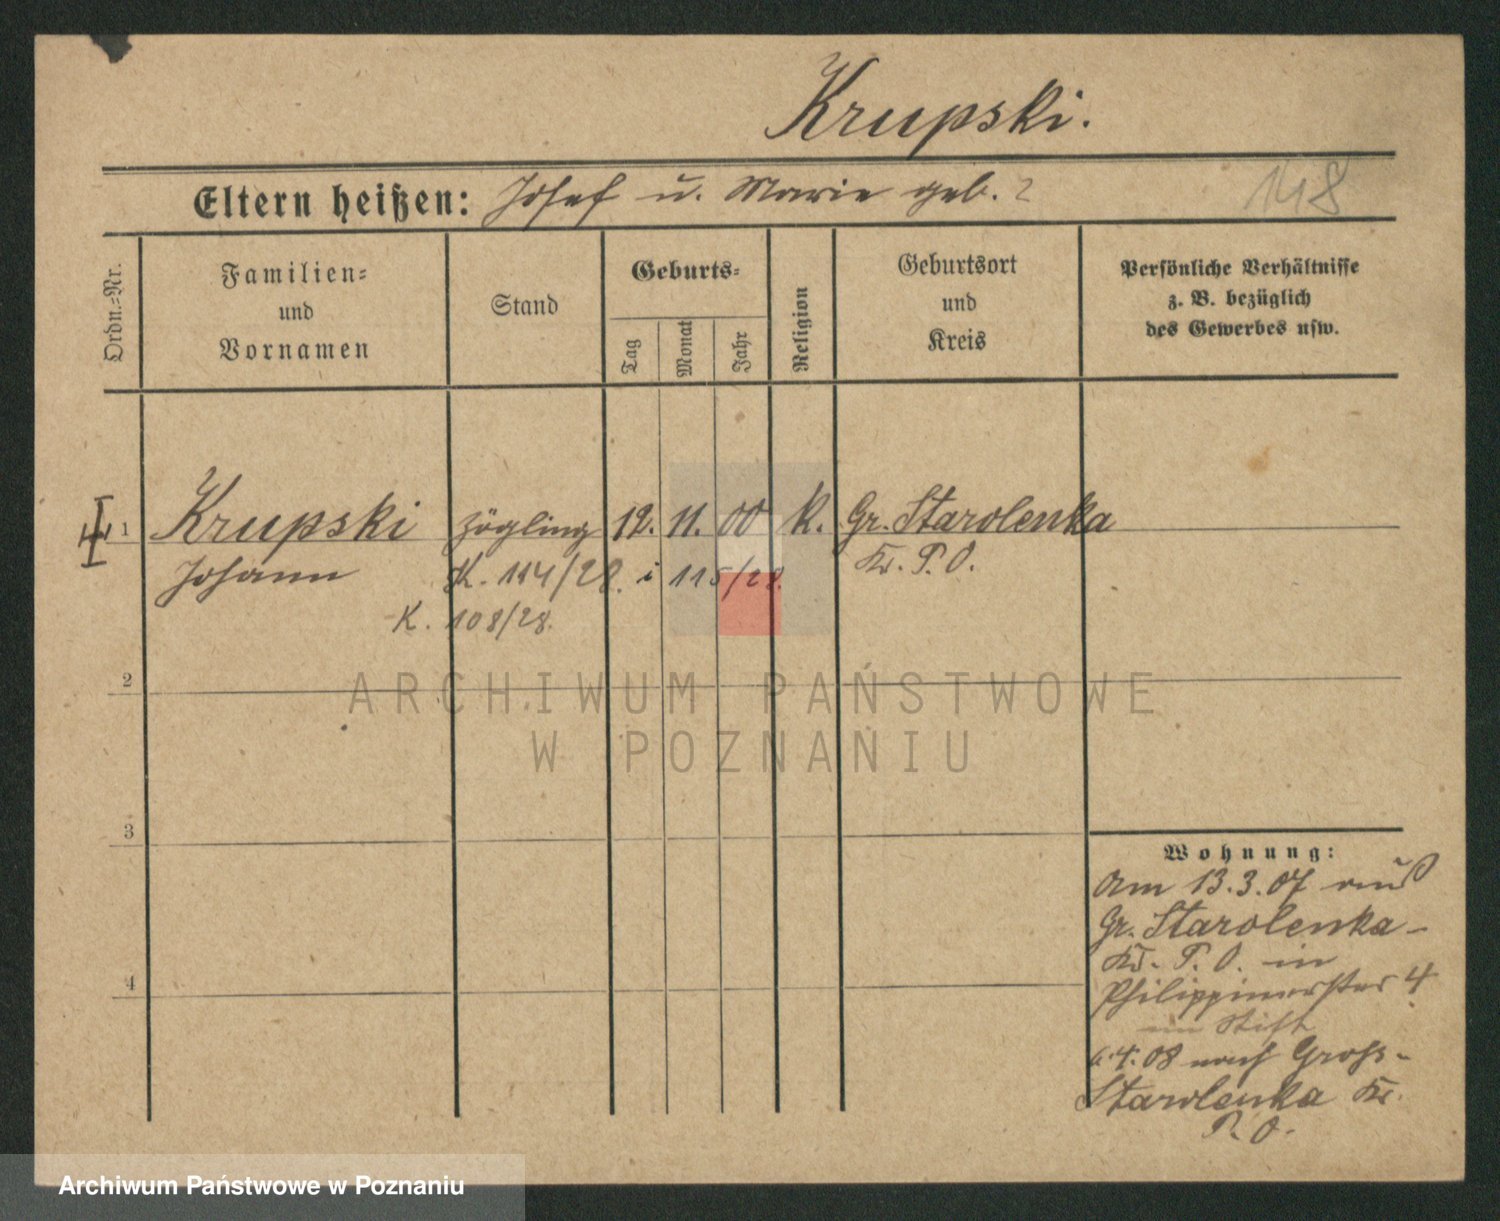 Krupski.
Eltern heißen: Josef u. Marie geb. ?
148
Ordn.=Nr.
Familien=
und
Vornamen
Stand
Geburts=
Tag
Monat
Jahr
Religion
Geburtsort
und
Kreis
Persönliche Verhältnisse
z. B. bezüglich
des Gewerbes usw.
1 Krupski Zögling 12. 11. 00 k. Gr. Starolenka
Johann K. 114/28. i 115/28. Kr. P. O.
K. 108/28.
2
3
4
Wohnung:
Am 13.3.07 aus
Gr. Starolenka -
Kr. P. O. in
Philippinerstr 4
im Stift
6.4.08 nach Gross-
Starolenka Kr.
P. O.
ARCHIWUM PAŃSTWOWE
W POZNANIU
Archiwum Państwowe w Poznaniu